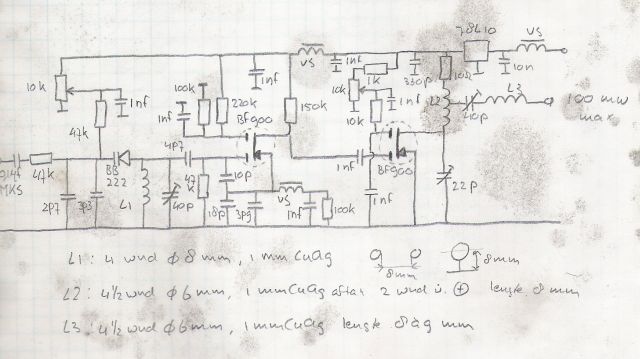 78L10
VS
VS
1nf
1k
330p
10Ω
10n
L3
10k
1nf
100k
1nf
220k
1nf
BF900
150k
10k
10k
1nf
L2
40p
100 mW
max
47k
4p7
BF900
47k
MKS
2p7
3p3
BB
222
L1
40p
47
k
10p
18p
3p9
VS
1nf
100k
1nf
1nf
22p
L1: 4 wnd ϕ 8 mm, 1 mm CuAg
8mm
8mm
L2: 4½ wnd ϕ 6 mm, 1 mm CuAg after 2 wnd v. ⊕ lengte 8 mm
L3: 4½ wnd ϕ 6 mm, 1 mm CuAg lengte mm